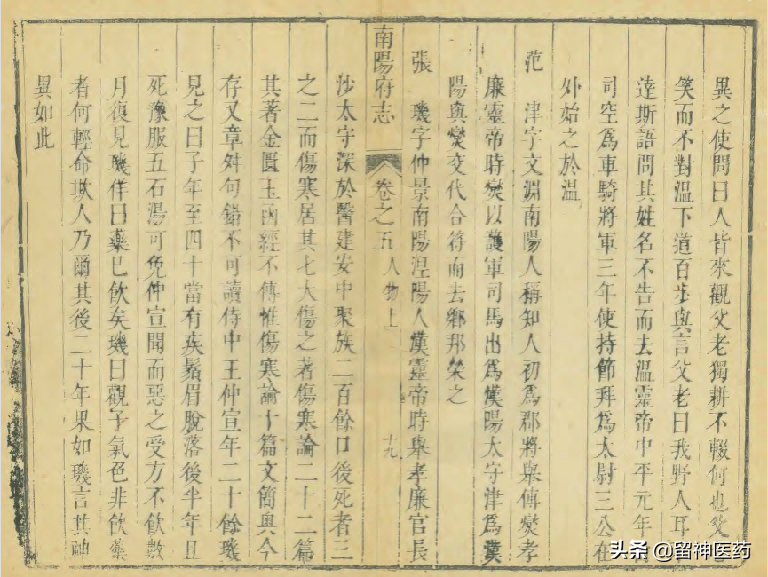 異之使問曰人皆來觀父老獨耕不輟何也父老
笑而不對溫下道百步與言父老曰我野人耳不
達斯語問其姓名不告而去溫靈帝中平元年
司空為車騎將軍三年使持節拜為太尉三公在
外始之於溫
范津字文淵南陽人稱知人初為郡將舉傅燮孝
廉靈帝時燮以護軍司馬出為漢陽太守津為漢
陽與燮交代合符而去鄉邦榮之
張璣字仲景南陽涅陽人漢靈帝時舉孝廉官長
南陽府志 卷之五 人物上 十九
沙太守深於醫建安中聚族二百餘口後死者三
之二而傷寒居其七大傷之著傷寒論二十二篇
其著金匱玉函經不傳惟傷寒論十篇文簡奧今
存又章舛句錯不可讀侍中王仲宣年二十餘璣
見之曰子年至四十當有疾鬚眉脫落後半年且
死豫服五石湯可免仲宣聞而惡之受方不飲數
月復見璣佯曰藥已飲矣璣曰觀子氣色非飲藥
者何輕命欺人乃爾其後二十年果如璣言其神
異如此
头条 @留神医药